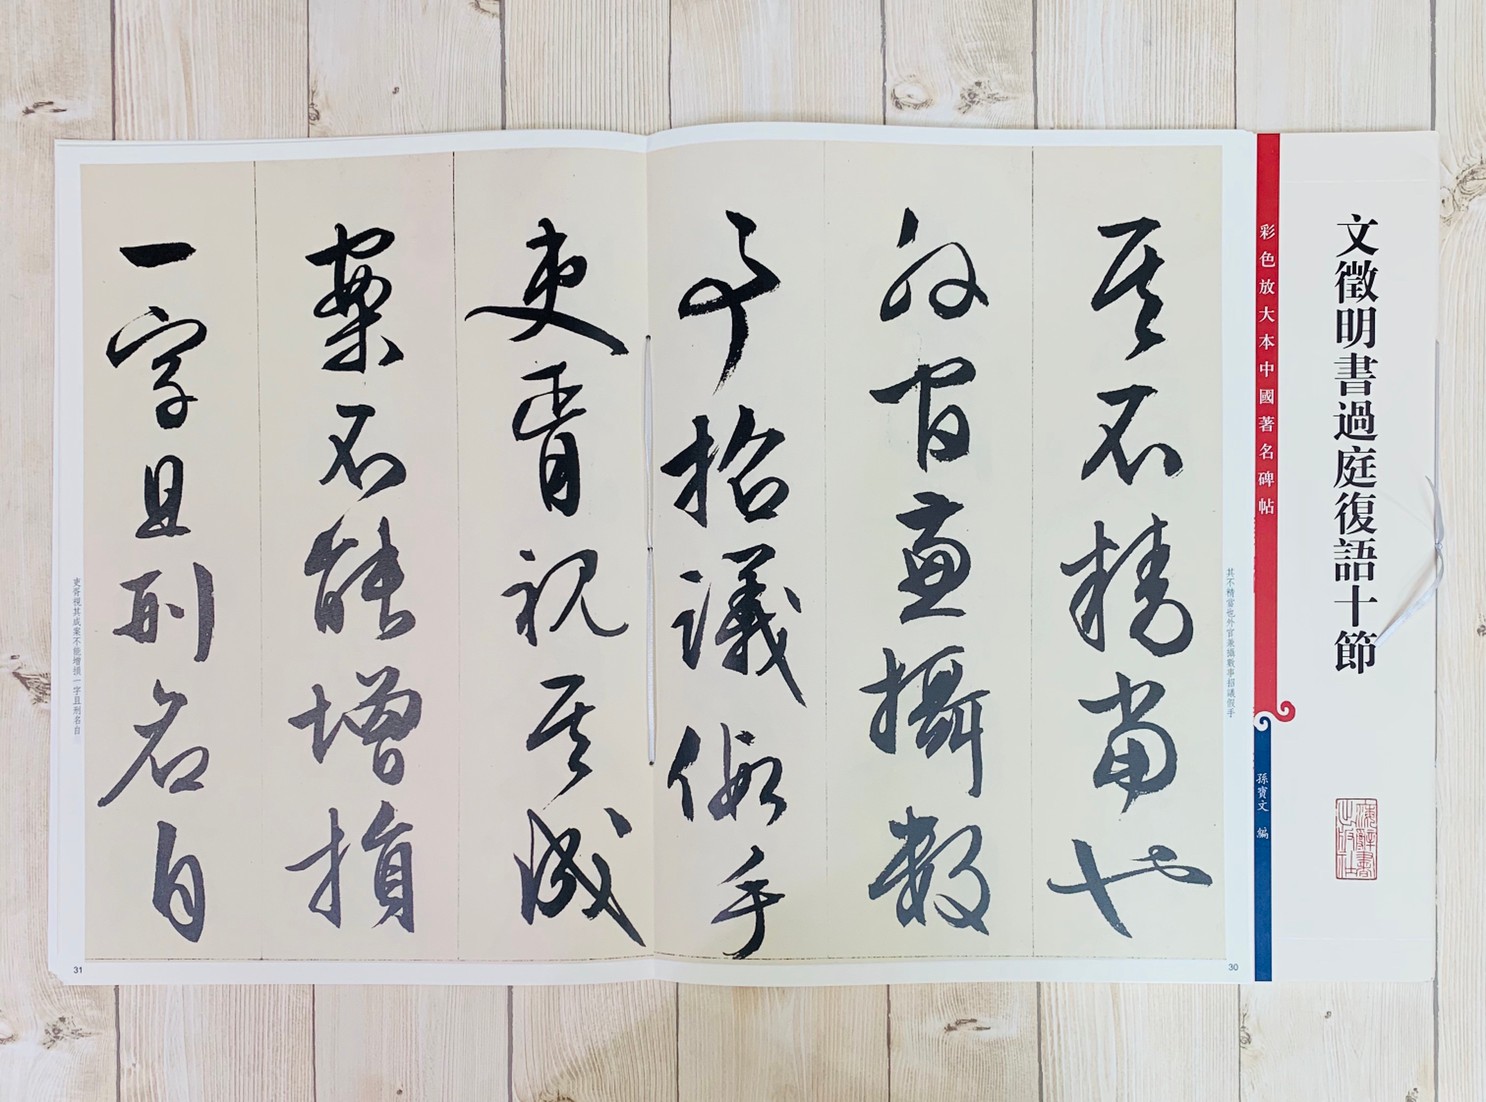 文徵明書過庭復語十節
彩色放大本中國著名碑帖
孫寶文 編
其不精當也外官兼攝數事招議假手
30
其不精當也
外官兼攝數
事招議假手
吏胥視其成
案不能增損
一字且刑名自
吏胥視其成案不能增損一字且刑名自
31